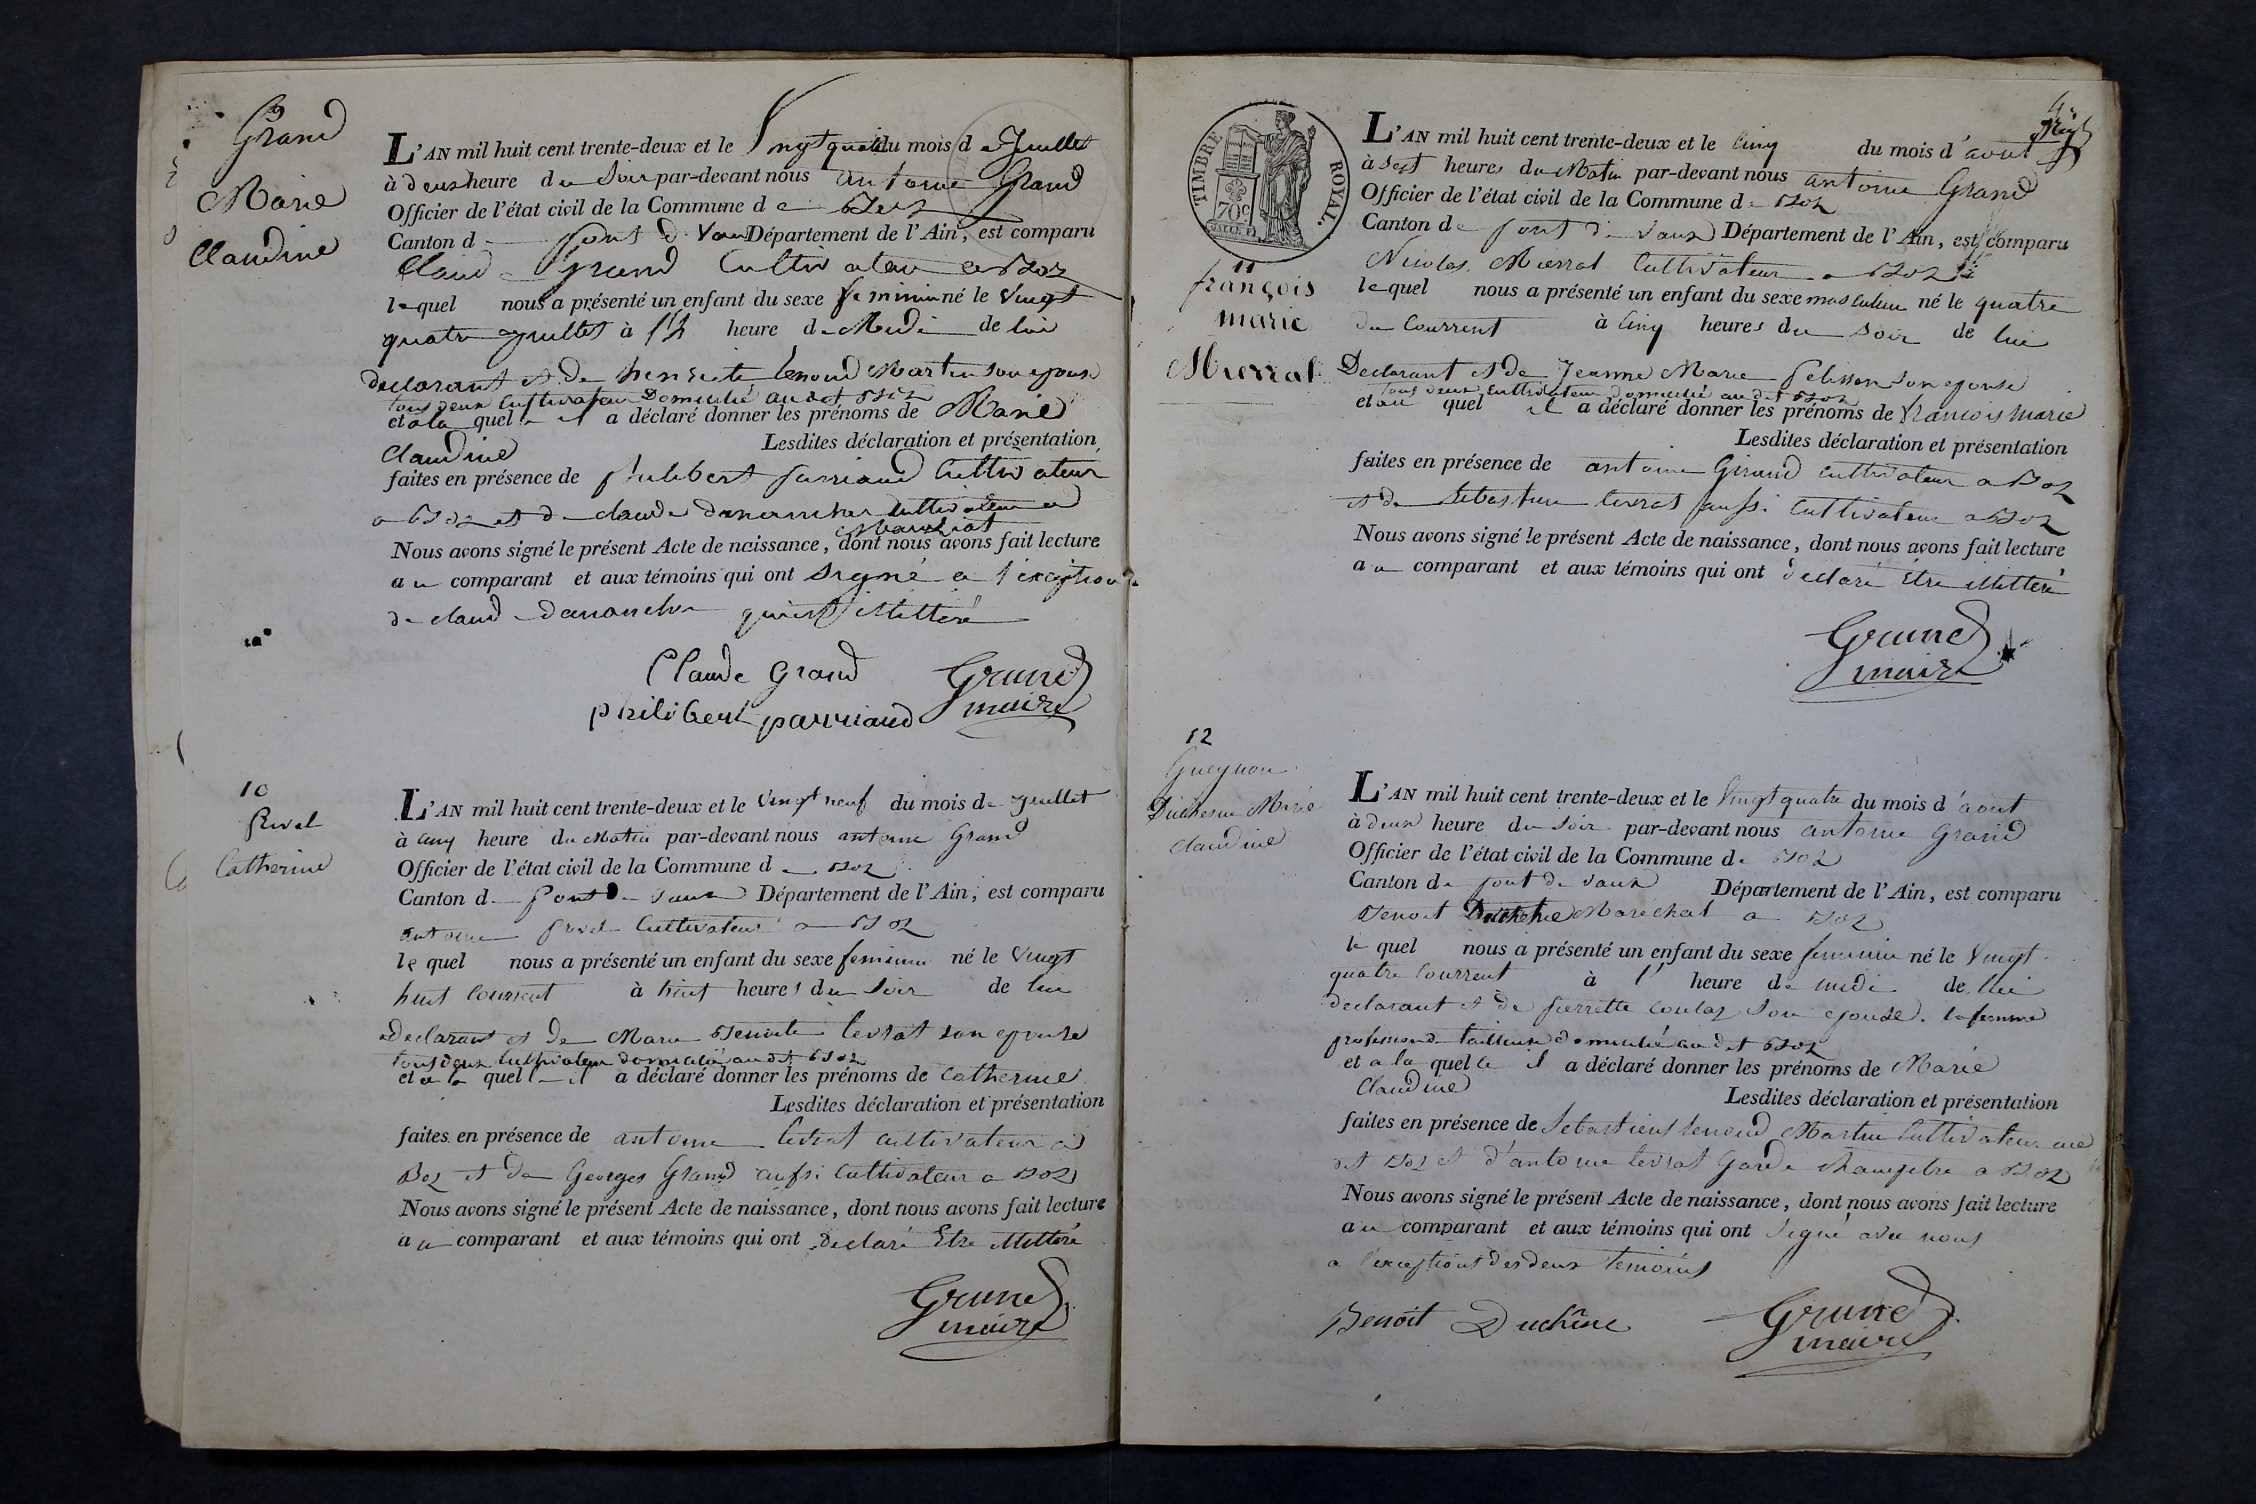 9
Grand
Marie
Claudine
L'AN mil huit cent trente-deux et le Vingt quatre du mois de Juillet
à deux heure du Soir par-devant nous antoine Grand
Officier de l'état civil de la Commune de Boz
Canton de pont de Vaux Département de l'Ain, est comparu
Claude Grand Cultivateur a Boz
lequel nous a présenté un enfant du sexe feminin né le Vingt
quatre juillet à heure de Midi de lui
declarant et de benoite Martin son epouse
tous deux Cultivateur Domicilié au dit Boz
et a la quelle il a déclaré donner les prénoms de Marie
Claudine Lesdites déclaration et présentation
faites en présence de philibert parriaud Cultivateur
a Boz et de claude danancher cultivateur a
Nous avons signé le présent Acte de naissance, dont nous avons fait lecture
au comparant et aux témoins qui ont signé a l'exception
de claude danancher qui est illittéré
Claude Grand
philibert parriaud
Grand
maire
10
Rivet
Catherine
L'AN mil huit cent trente-deux et le Vingt neuf du mois de juillet
à cinq heure du Matin par-devant nous antoine Grand
Officier de l'état civil de la Commune de Boz
Canton de Pont de Vaux Département de l'Ain, est comparu
antoine Cultivateur a Boz
le quel nous a présenté un enfant du sexe feminin né le Vingt
huit Courrent à huit heures du Soir de lui
Declarant et de Marie Benoite levrat son epouse
tous deux cultivateur domicilié au dit Boz
et a la quelle il a déclaré donner les prénoms de Catherine
Lesdites déclaration et présentation
faites en présence de antoine levrat cultivateur a
Boz et de Georges Grand aussi Cultivateur a Boz
Nous avons signé le présent Acte de naissance, dont nous avons fait lecture
au comparant et aux témoins qui ont Declaré Etre illittéré
Grand
maire
TIMBRE ROYAL.
70c
11
françois
marie
Mierral
L'AN mil huit cent trente-deux et le Cinq du mois d'aout
à sept heures du Matin par-devant nous antoine Grand
Officier de l'état civil de la Commune de Boz
Canton de pont de Vaux Département de l'Ain, est comparu
Nicolas Mierral Cultivateur a Boz
lequel nous a présenté un enfant du sexe masculin né le quatre
du Courrent à Cinq heures du soir de lui
Declarant et de Jeanne Marie Pelisson son epouse
tous deux cultivateur domicilié au dit Boz
et au quel il a déclaré donner les prénoms de francois marie
Lesdites déclaration et présentation
faites en présence de antoine Giraud cultivateur a Boz
et de Sebastien levrat aussi Cultivateur a Boz
Nous avons signé le présent Acte de naissance, dont nous avons fait lecture
au comparant et aux témoins qui ont declaré Etre illittéré
Grand
maire
12
Duchesne Marie
claudine
L'AN mil huit cent trente-deux et le Vingt quatre du mois d'aout
à deux heure du Soir par-devant nous antoine Grand
Officier de l'état civil de la Commune de Boz
Canton de pont de Vaux Département de l'Ain, est comparu
Benoit Duchene Maréchal a Boz
le quel nous a présenté un enfant du sexe feminin né le Vingt
quatre Courrent à heure de midi de lui
declarant et de pierrette coulas son epouse. la femme
tailleuse domicilié au dit Boz
et a la quelle il a déclaré donner les prénoms de Marie
Claudine Lesdites déclaration et présentation
faites en présence de Sebastient Martin Cultivateur au
dit Boz et d'antoine levrat Garde Champetre a Boz
Nous avons signé le présent Acte de naissance, dont nous avons fait lecture
au comparant et aux témoins qui ont Signé avec nous
a l'exceptions des deux temoins
Benoit Duchêne
Grand
maire